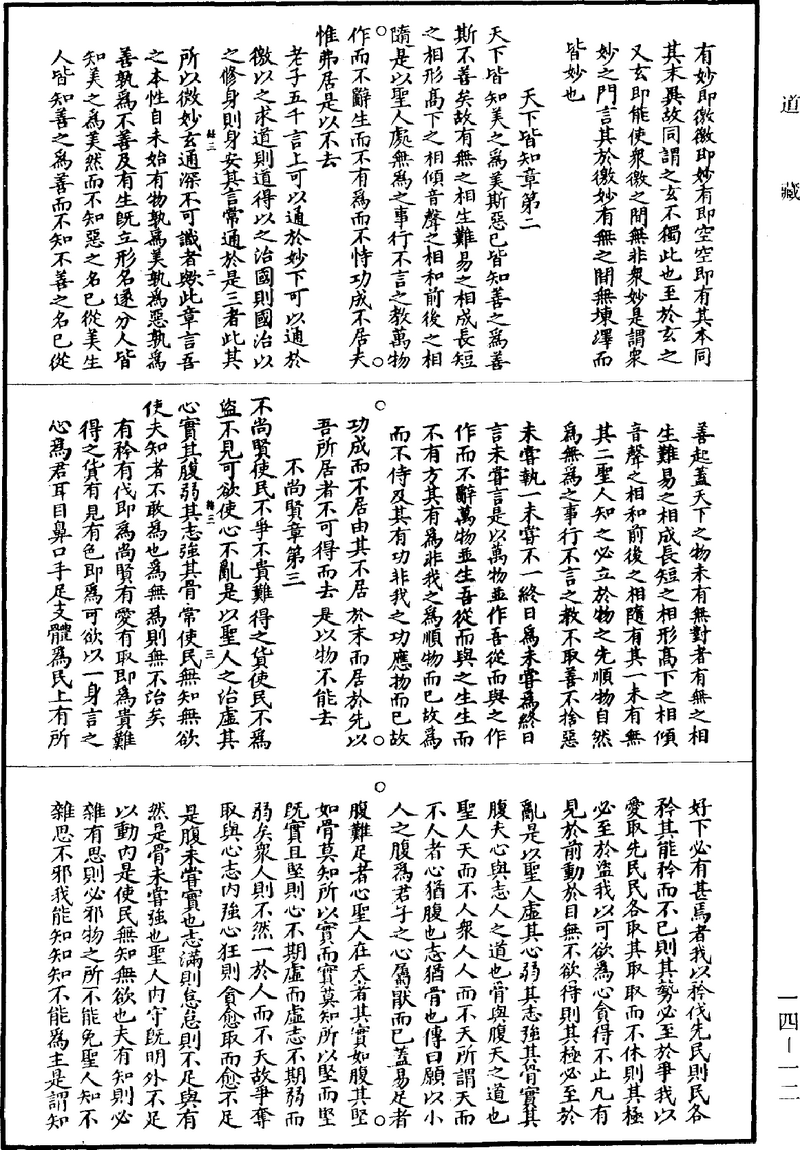 道藏
有妙即徼徼即妙有即空空即有其本同
其末異故同謂之玄不獨此也至於玄之
又玄即能使衆徼之間無非衆妙是謂衆
妙之門言其於徼妙有無之間無揀擇而
皆妙也
天下皆知章第二
天下皆知美之爲美斯惡已皆知善之爲善
斯不善矣故有無之相生難易之相成長短
之相形高下之相傾音聲之相和前後之相
隨是以聖人處無爲之事行不言之教萬物
作而不辭生而不有爲而不恃功成不居夫
惟弗居是以不去
老子五千言上可以通於妙下可以通於
徼以之求道則道得以之治國則國治以
之修身則身安其言常通於是三者此其
所以微妙玄通深不可識者歟此章言吾
之本性自未始有物孰爲美孰爲惡孰爲
善孰爲不善及有生既立形名遂分人皆
知美之爲美然而不知惡之名已從美生
人皆知善之爲善而不知不善之名已從
二
善起蓋天下之物未有無對者有無之相
生難易之相成長短之相形高下之相傾
音聲之相和前後之相隨有其一未有無
其二聖人知之必立於物之先順物自然
爲無爲之事行不言之教不取善不捨惡
未嘗執一未嘗不一終日爲未嘗爲終日
言未嘗言是以萬物並作吾從而與之作
作而不辭萬物並生吾從而與之生生而
不有方其有爲非我之爲順物而已故爲
而不恃及其有功非我之功應物而已故
功成而不居由其不居於末而居於先以
吾所居者不可得而去是以物不能去
不尚賢章第三
不尚賢使民不爭不貴難得之貨使民不爲
盜不見可欲使心不亂是以聖人之治虛其
心實其腹弱其志強其骨常使民無知無欲
使夫知者不敢爲也爲無爲則無不治矣
有矜有伐即爲尚賢有愛有取即爲貴難
得之貨有見有色即爲可欲以一身言之
心爲君耳目鼻口手足支體爲民上有所
三
好下必有甚焉者我以矜伐先民則民各
矜其能矜而不已則其勢必至於爭我以
愛取先民民各取其取取而不休則其極
必至於盜我以可欲爲心貪得不止凡有
見於前動於目無不欲得則其極必至於
亂是以聖人虛其心弱其志強其骨實其
腹夫心與志人之道也骨與腹天之道也
聖人天而不人衆人人而不天所謂天而
不人者心猶腹也志猶骨也傳曰願以小
人之腹爲君子之心屬猒而已蓋易足者
腹難足者心聖人在天者其實如腹其堅
如骨莫知所以實而實莫知所以堅而堅
既實且堅則心不期虛而虛志不期弱而
弱矣衆人則不然一於人而不天故爭奪
取與心志内強心狂則貪愈取而愈不足
是腹未嘗實也志滿則怠怠則不足與有
然是骨未嘗強也聖人内守既明外不足
以動内是使民無知無欲也夫有知則必
雜有思則必邪物之所不能免聖人知不
雜思不邪我能知知知不能爲主是謂知
一四－一二